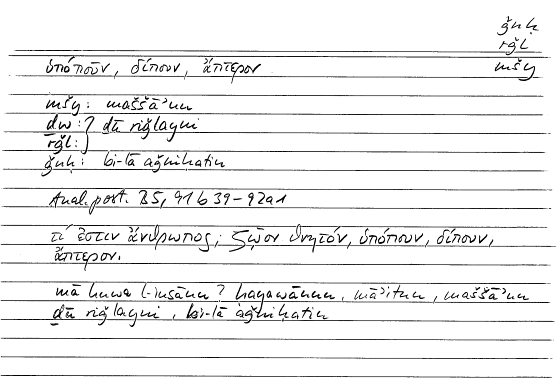 ǧnḥ
rǧl
mšy
ὑπόπουν, δίπουν, ἄπτερον
mšy: maššāʾun
ḏw :} ḏū riǧlayni
rǧl:
ǧnḥ: bi-lā aǧniḥatin
Anal. post. B5, 91 b 39-92a1
τί ἐστιν ἄνθρωπος; ζῷον θνητόν, ὑπόπουν, δίπουν,
ἄπτερον.
mā huwa l-insānu? ḥayawānun, māʾitun, maššāʾun
ḏū riǧlayni, bi-lā aǧniḥatin